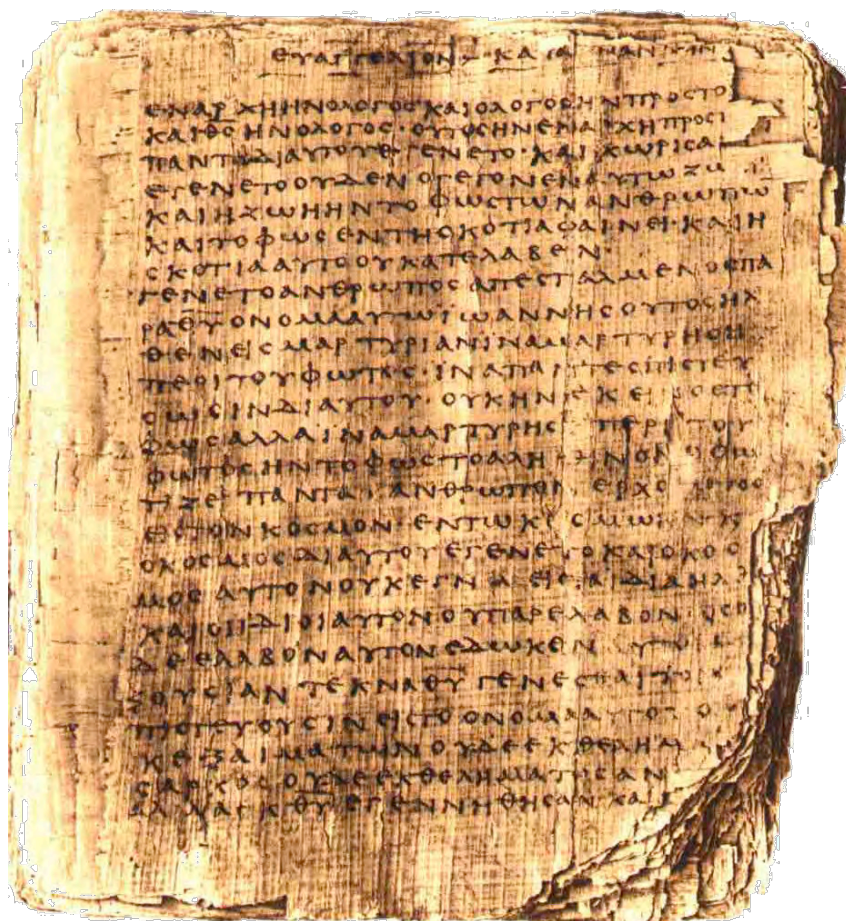 ΕΥΑΓΓΕΛΙΟΝ ΚΑΤΑ
ΕΝΑΡΧΗΗΝΟΛΟΓΟϹΚΑΙΟΛΟΓΟϹΗΝΠΡΟϹΤΟ
ΚΑΙΘ̅Ϲ̅ΗΝΟΛΟΓΟϹ·ΟΥΤΟϹΗΝΕΝΑΡΧΗΠΡΟϹΤ
ΠΑΝΤΑΔΙΑΥΤΟΥΕΓΕΝΕΤΟ·ΚΑΙΧΩΡΙϹΑ
ΕΓΕΝΕΤΟΟΥΔΕΝΟΓΕΓΟΝΕΝΑΥΤΩΖΩ
ΚΑΙΗΖΩΗΗΝΤΟΦΩϹΤΩΝΑΝΘΡΩΠΩ
ΚΑΙΤΟΦΩϹΕΝΤΗϹΚΟΤΙΑΦΑΙΝΕΙ·ΚΑΙΗ
ϹΚΟΤΙΑΑΥΤΟΟΥΚΑΤΕΛΑΒΕΝ·
ΓΕΝΕΤΟΑΝΘΡΩΠΟϹΑΠΕϹΤΑΛΜΕΝΟϹΠΑ
ΡΑΘ̅Υ̅ΟΝΟΜΑΑΥΤΩΙΩΑΝΝΗϹΟΥΤΟϹΗΛ
ΘΕΝΕΙϹΜΑΡΤΥΡΙΑΝΙΝΑΜΑΡΤΥΡΗϹΗ
ΠΕΡΙΤΟΥΦΩΤΟϹ·ΙΝΑΠΑΝΤΕϹΠΙϹΤΕΥ
ϹΩϹΙΝΔΙΑΥΤΟΥ·ΟΥΚΗΝΕΚΕΙΝΟϹΤΟ
ΦΩϹΑΛΛΑΙΝΑΜΑΡΤΥΡΗϹΗ ΠΕΡΙΤΟΥ
ΦΩΤΟϹ·ΗΝΤΟΦΩϹΤΟΑΛΗΘΙΝΟΝΟΦΩ
ΤΙΖΕΙΠΑΝΤΑΑΝΘΡΩΠΟΝΕΡΧΟΜΕΝΟ
ΕΙϹΤΟΝΚΟϹΜΟΝ·ΕΝΤΩΚΟϹΜΩΗΝΚ
ΟΚΟϹΜΟϹΔΙΑΥΤΟΥΕΓΕΝΕΤΟΚΑΙΟΚΟϹ
ΜΟϹΑΥΤΟΝΟΥΚΕΓΝΩΕΙϹΤΑΙΔΙΑΗΛΘ
ΚΑΙΟΙΙΔΙΟΙΑΥΤΟΝΟΥΠΑΡΕΛΑΒΟΝ·ΟϹΟ
ΔΕΕΛΑΒΟΝΑΥΤΟΝΕΔΩΚΕΝΑΥΤΟΙ
ΞΟΥϹΙΑΝΤΕΚΝΑΘ̅Υ̅ΓΕΝΕϹΘΑΙΤΟΙ
ΠΙϹΤΕΥΟΥϹΙΝΕΙϹΤΟΟΝΟΜΑΑΥΤΟΥ
ΚΕΞΑΙΜΑΤΩΝΟΥΔΕΕΚΘΕΛΗΜ
ϹΑΡΚΟϹΟΥΔΕΕΚΘΕΛΗΜΑΤΟϹΑΝ
ΑΛΛΑΕΚΘ̅Υ̅ΕΓΕΝΝΗΘΗϹΑΝ·ΚΑΙ